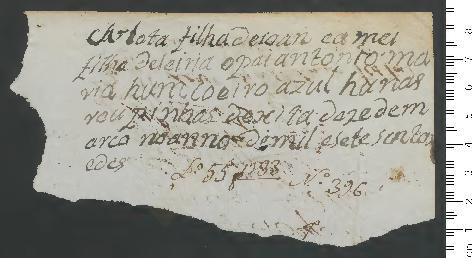 Carlota filha de ioan ea mei
filha de leiria o pai antonio ma
ria hun coeiro azul hunas
roupinhas de xita dezedem
arco no anno de mil e sete senta
edes
Lº 55 f 188 Nº 396